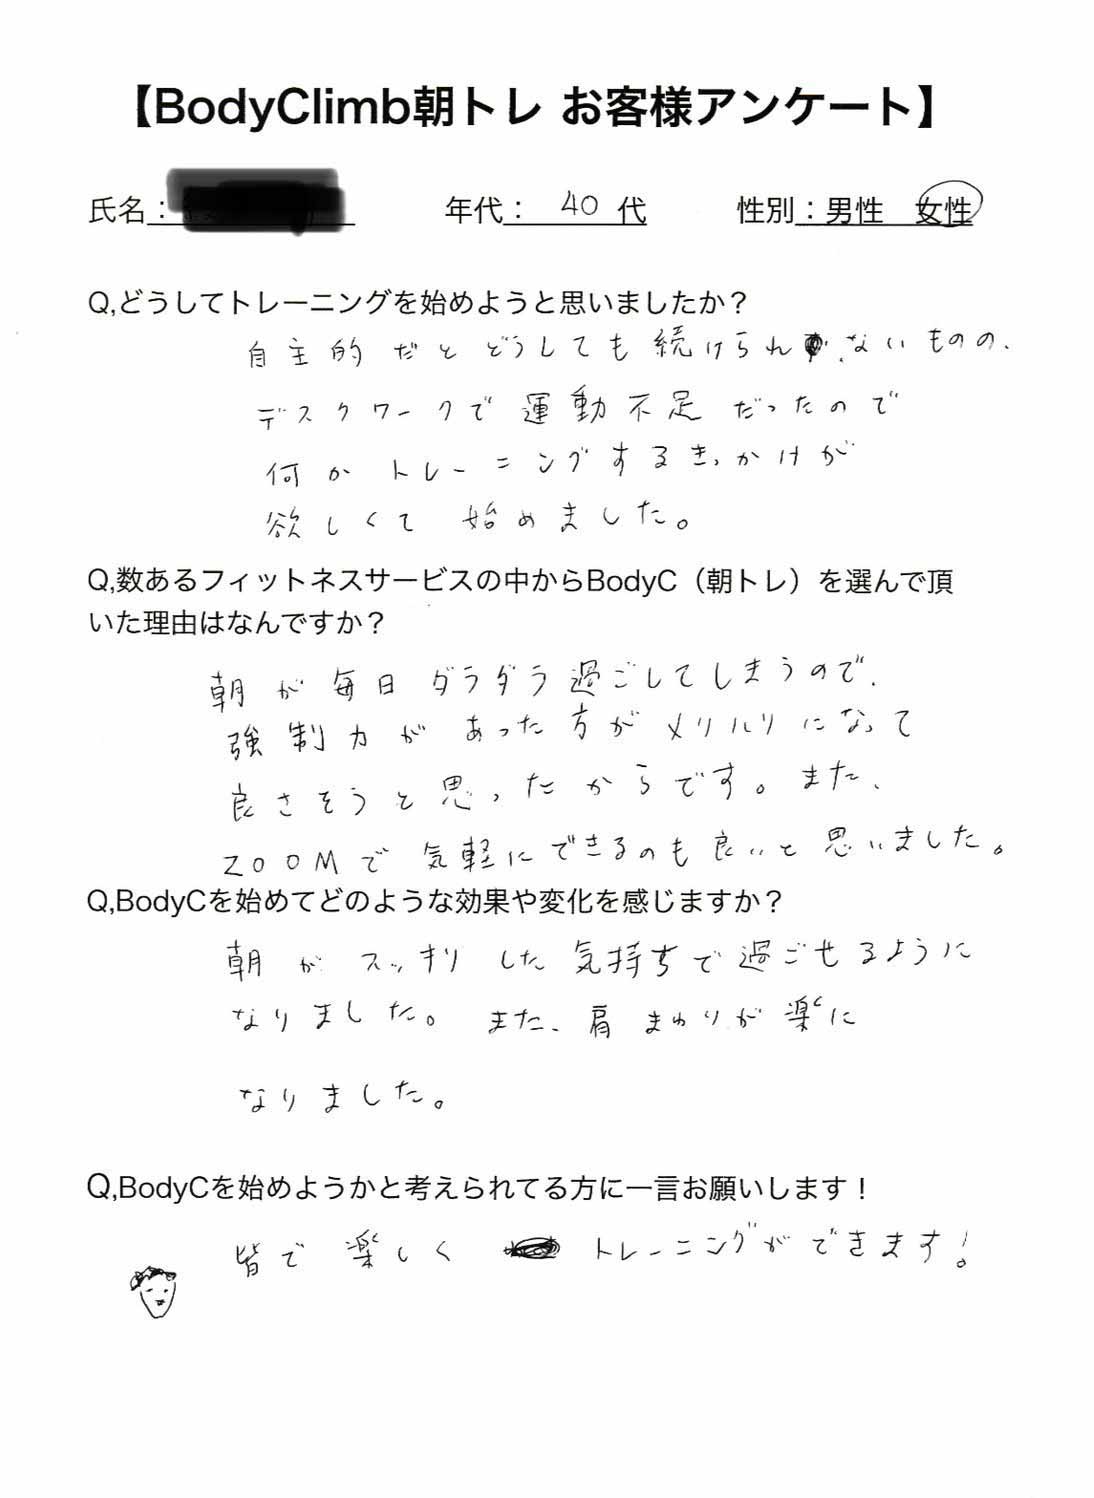 【BodyClimb朝トレ お客様アンケート】
氏名： 年代： 40 代 性別：男性 女性
Q,どうしてトレーニングを始めようと思いましたか？
自主的だとどうしても続けられないものの、
デスクワークで運動不足だったので
何かトレーニングするきっかけが
欲しくて始めました。
Q,数あるフィットネスサービスの中からBodyC（朝トレ）を選んで頂
いた理由はなんですか？
朝が毎日ダラダラ過ごしてしまうので、
強制力があった方がメリハリになって
良さそうと思ったからです。また、
ZOOMで気軽にできるのも良いと思いました。
Q,BodyCを始めてどのような効果や変化を感じますか？
朝がスッキリした気持ちで過ごせるように
なりました。また、肩まわりが楽に
なりました。
Q,BodyCを始めようかと考えられてる方に一言お願いします！
皆で楽しくトレーニングができます！